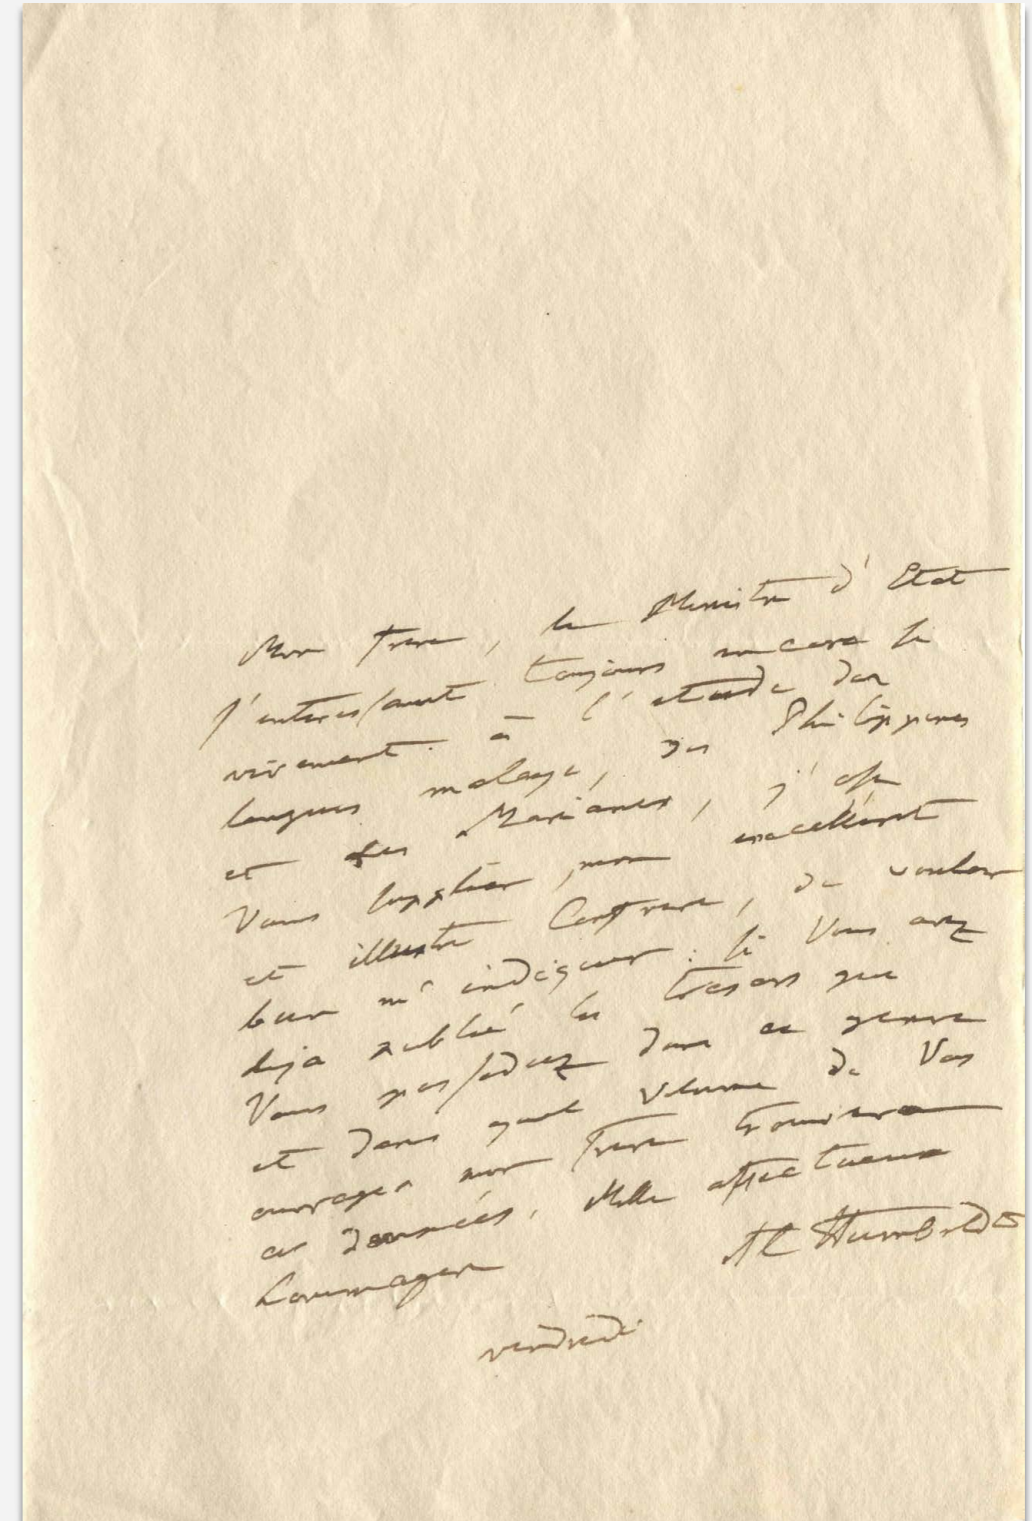 Mon frere, le Ministre d'Etat
s'interessant toujours encore si
vivement à l'etude des
langues malayes, des Philippines
et des Marianes, j'ose
Vous supplier, mon excellent
et illustre Confrere, de vouloir
bien m'indiquer: si Vous avez
deja publié les tresors que
Vous possedez dans ce genre
et dans quel volume de Vos
ouvrages mon frere trouvera
ces données. Mille affectueux
hommages
Al Humboldt
vendredi